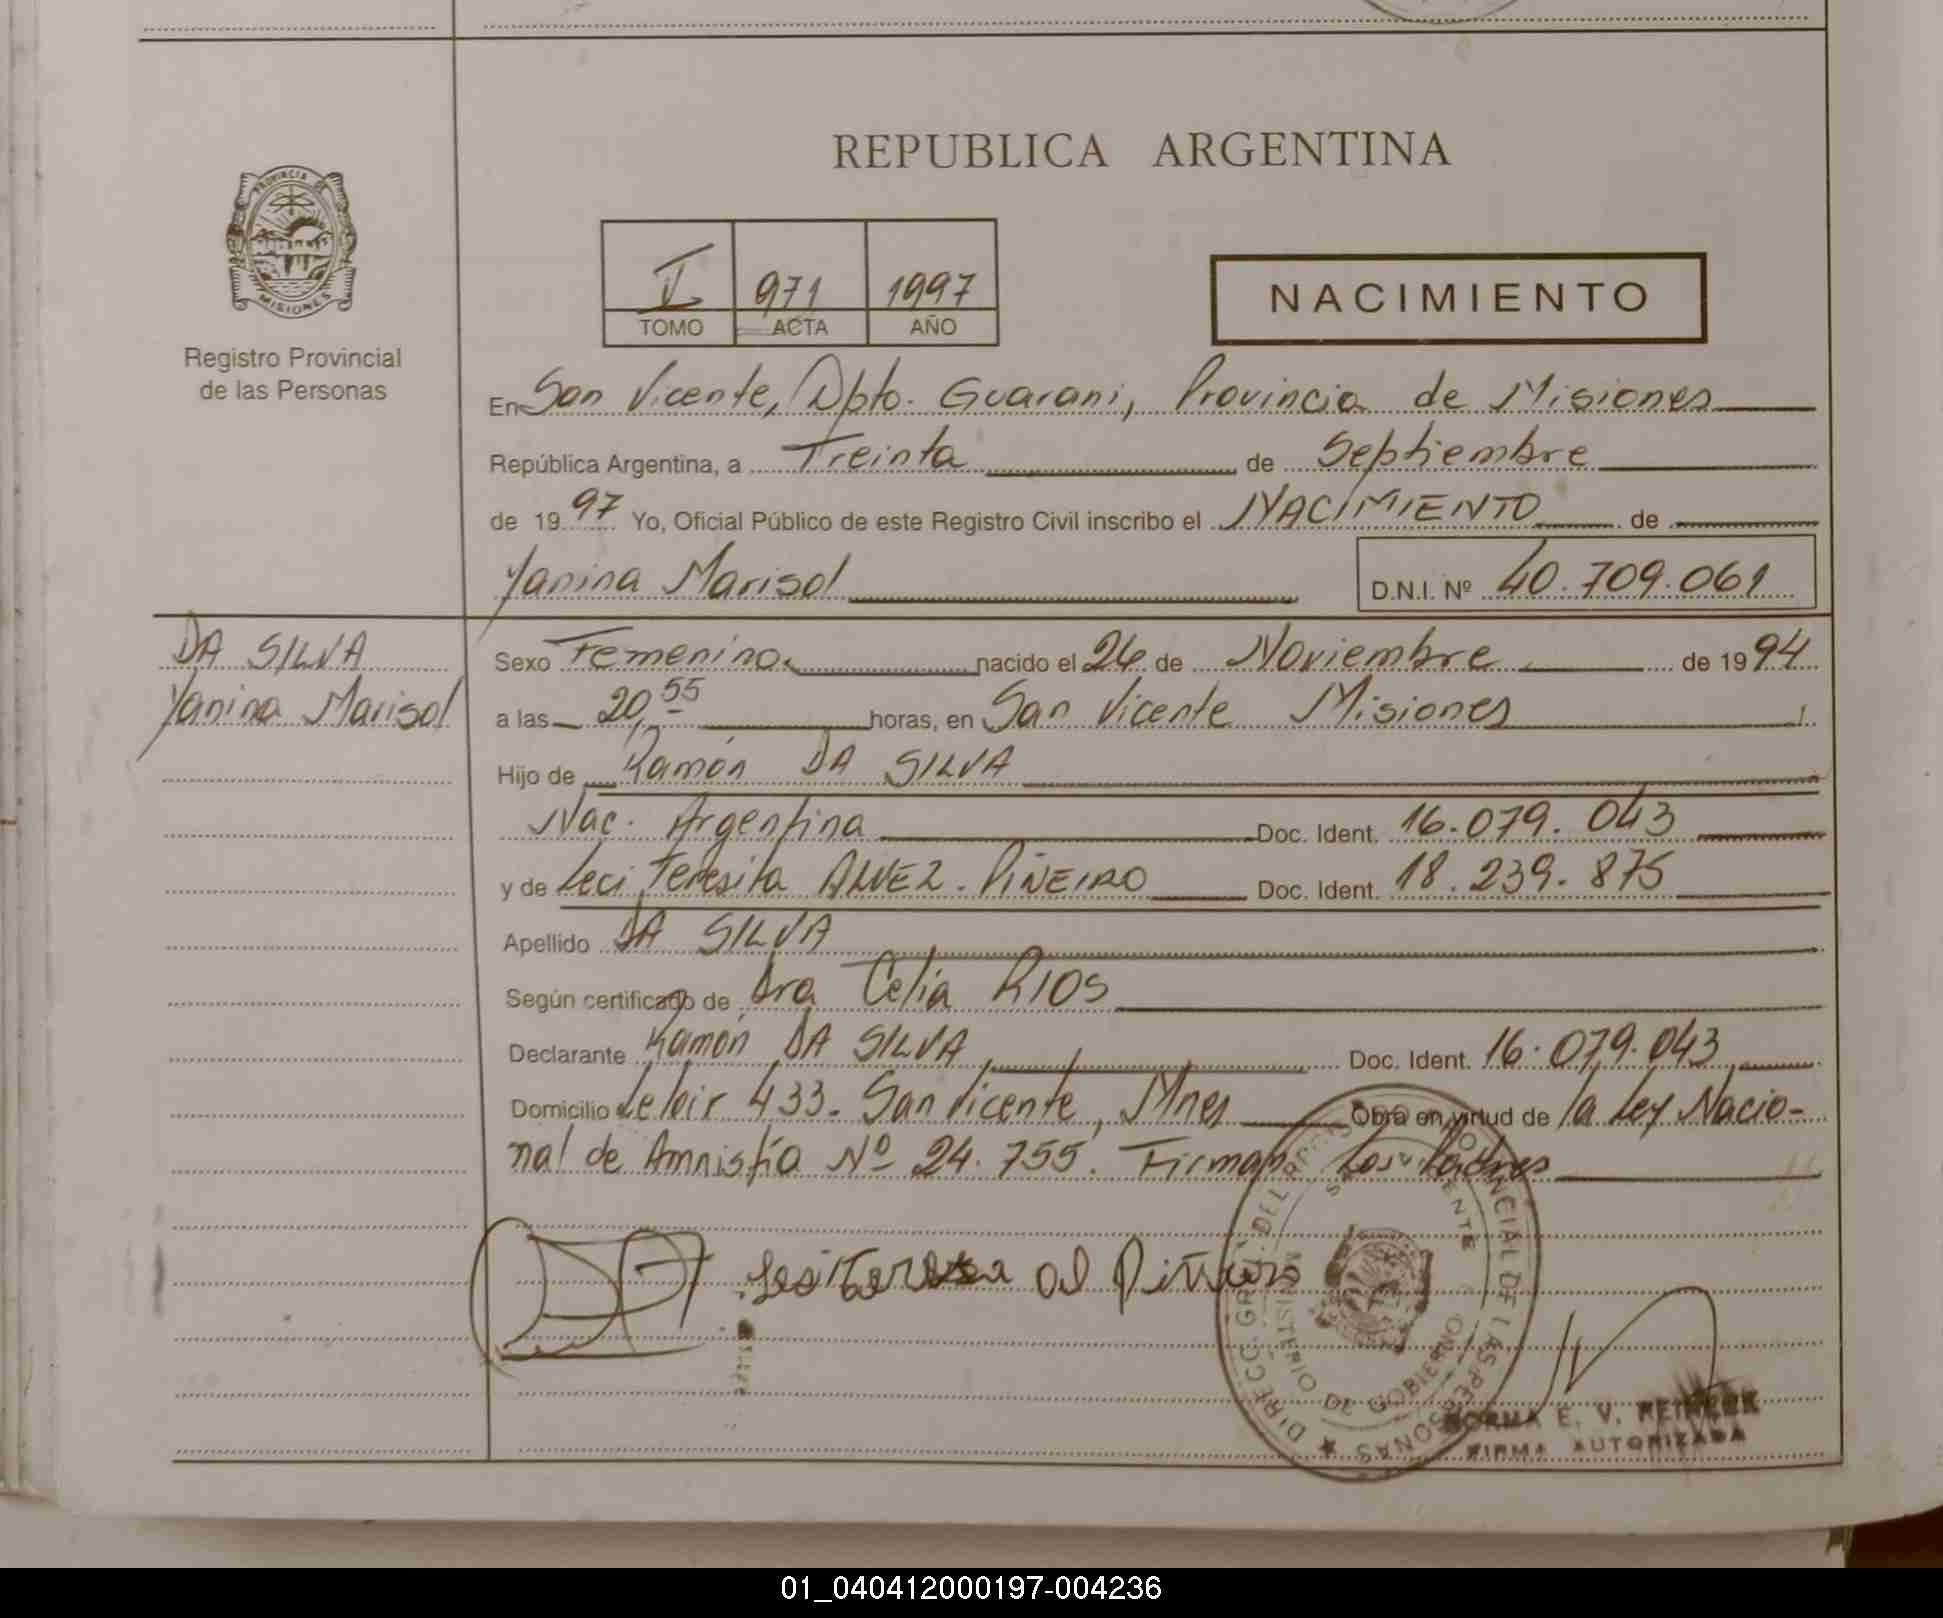 REPUBLICA ARGENTINA
PROVINCIA DE
MISIONES
Registro Provincial
de las Personas
971 1997
TOMO ACTA AÑO
NACIMIENTO
En San Vicente, Dpto. Guarani, Provincia de Misiones
República Argentina, a Treinta de Septiembre
de 1997 Yo, Oficial Público de este Registro Civil inscribo el NACIMIENTO de
Yanina Marisol D.N.I. Nº 40.709.061
DA SILVA
Yanina Marisol
Sexo Femenino. nacido el 26 de Noviembre de 1994
a las 20,55 horas, en San Vicente Misiones
Hijo de Ramón DA SILVA
Nac. Argentina Doc. Ident. 16.079.043
y de Leci Teresita ALVEZ. PIÑEIRO Doc. Ident. 18.239.875
Apellido DA SILVA
Según certificado de Dra Celia RIOS
Declarante Ramón DA SILVA Doc. Ident. 16.079.043
Domicilio Leloir 433. San Vicente, Mnes Obra en virtud de la Ley Nacio-
nal de Amnistía Nº 24.755. Firman Los Padres
DIRECC. GRAL. DEL REGISTRO PROVINCIAL DE LAS PERSONAS
SAN VICENTE
MINISTERIO DE GOBIERNO
NORMA E. V.
FIRMA AUTORIZADA
01_040412000197-004236